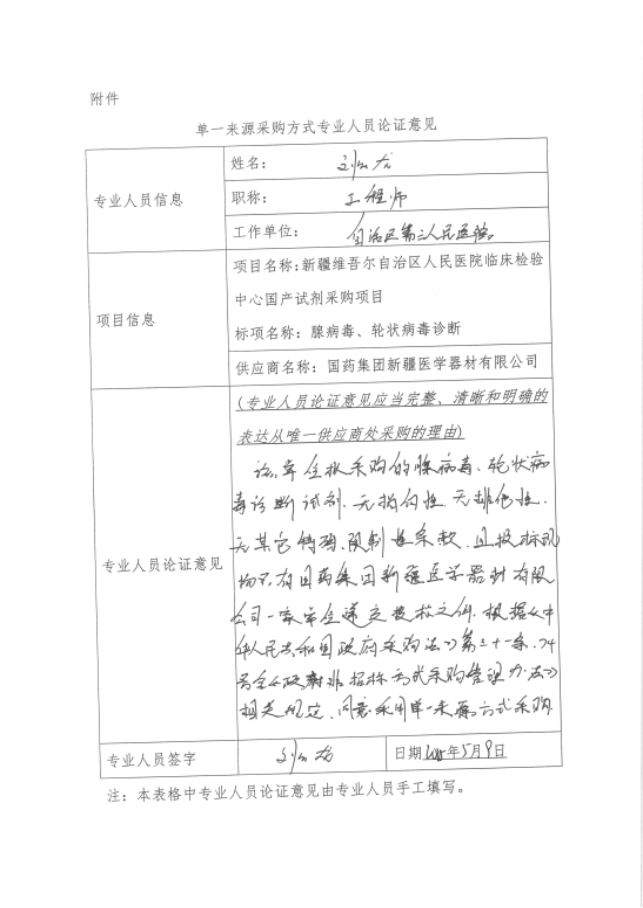 附件
单一来源采购方式专业人员论证意见
专业人员信息
姓名：
职称： 工程师
工作单位： 自治区第三人民医院
项目信息
项目名称：新疆维吾尔自治区人民医院临床检验
中心国产试剂采购项目
标项名称：腺病毒、轮状病毒诊断
供应商名称：国药集团新疆医学器材有限公司
专业人员论证意见
(专业人员论证意见应当完整、清晰和明确的
表达从唯一供应商处采购的理由)
该单位拟采购的腺病毒、轮状病
毒诊断试剂.无指向性.无排他性.
无其它特殊.限制性条款.且投标
有国药集团新疆医学器材有限
公司一家单位递交投标文件.根据《中
华人民共和国政府采购法》第三十一条.74
号令《政府非招标方式采购管理办法》
相关规定.同意采用单一来源方式采购
专业人员签字
日期 年5月9日
注：本表格中专业人员论证意见由专业人员手工填写。